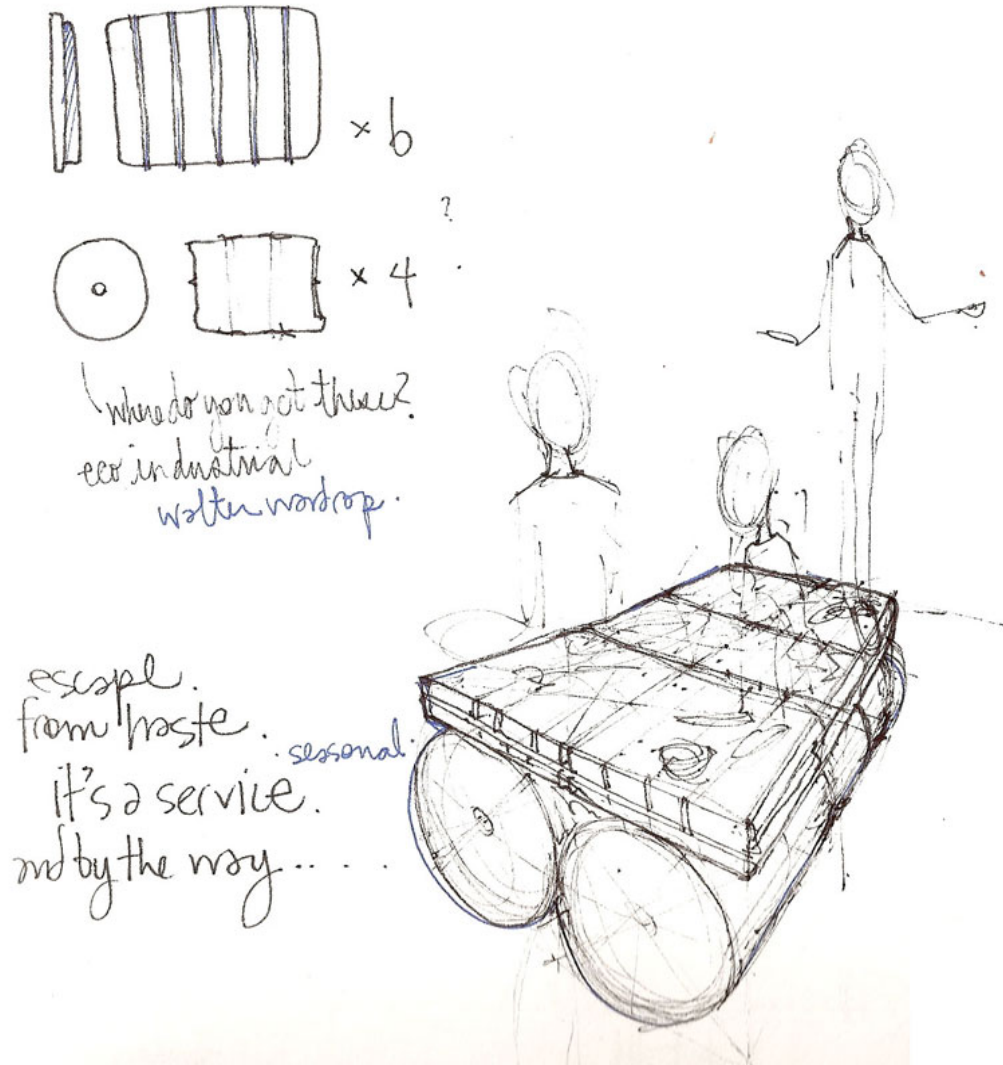 × 6
?
× 4
where do you get these?
eco industrial
walter wardrop.
escape.
from waste.
seasonal.
it's a service.
and by the way.....